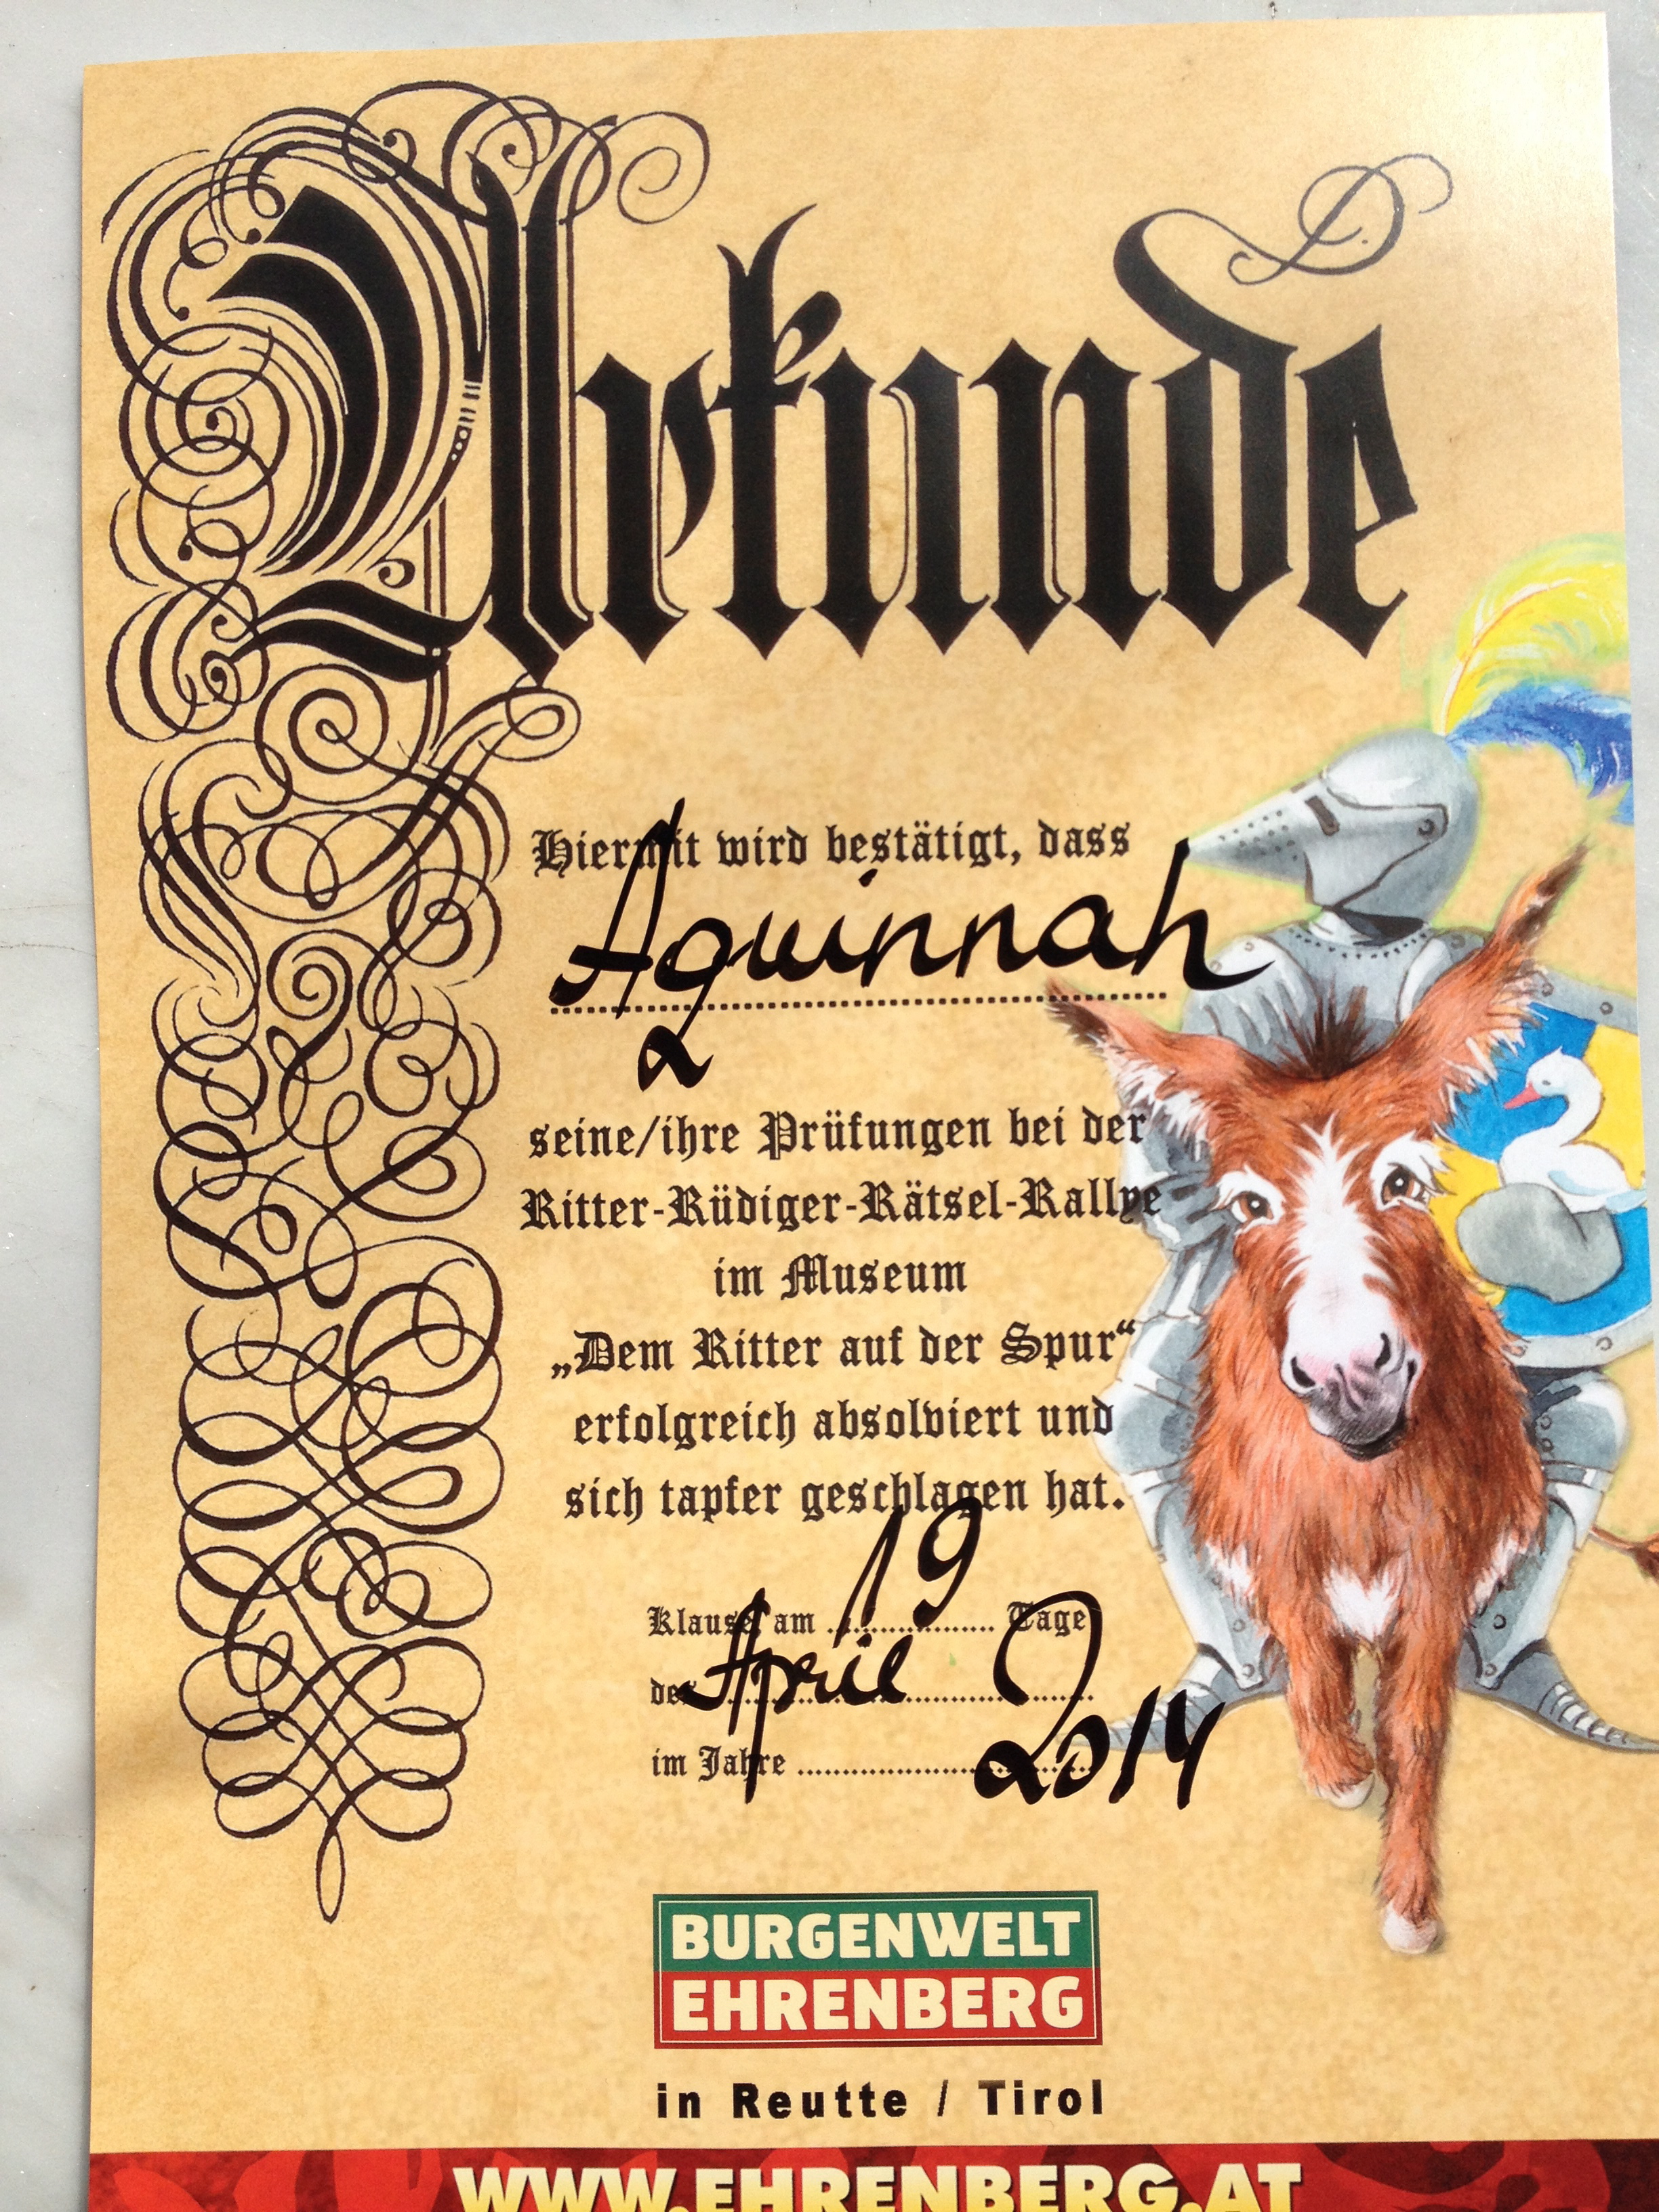 Urkunde
Hiermit wird bestätigt, dass
Aquinnah
seine/ihre Prüfungen bei der
Ritter-Rüdiger-Rätsel-Rallye
im Museum
„Dem Ritter auf der Spur“
erfolgreich absolviert und
sich tapfer geschlagen hat.
Klause, am 19 Tage
des April
im Jahre 2014
BURGENWELT
EHRENBERG
in Reutte / Tirol
WWW.EHRENBERG.AT